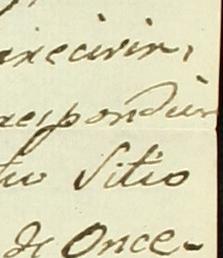 recivir,
respondien
tro Sitio
de Once-